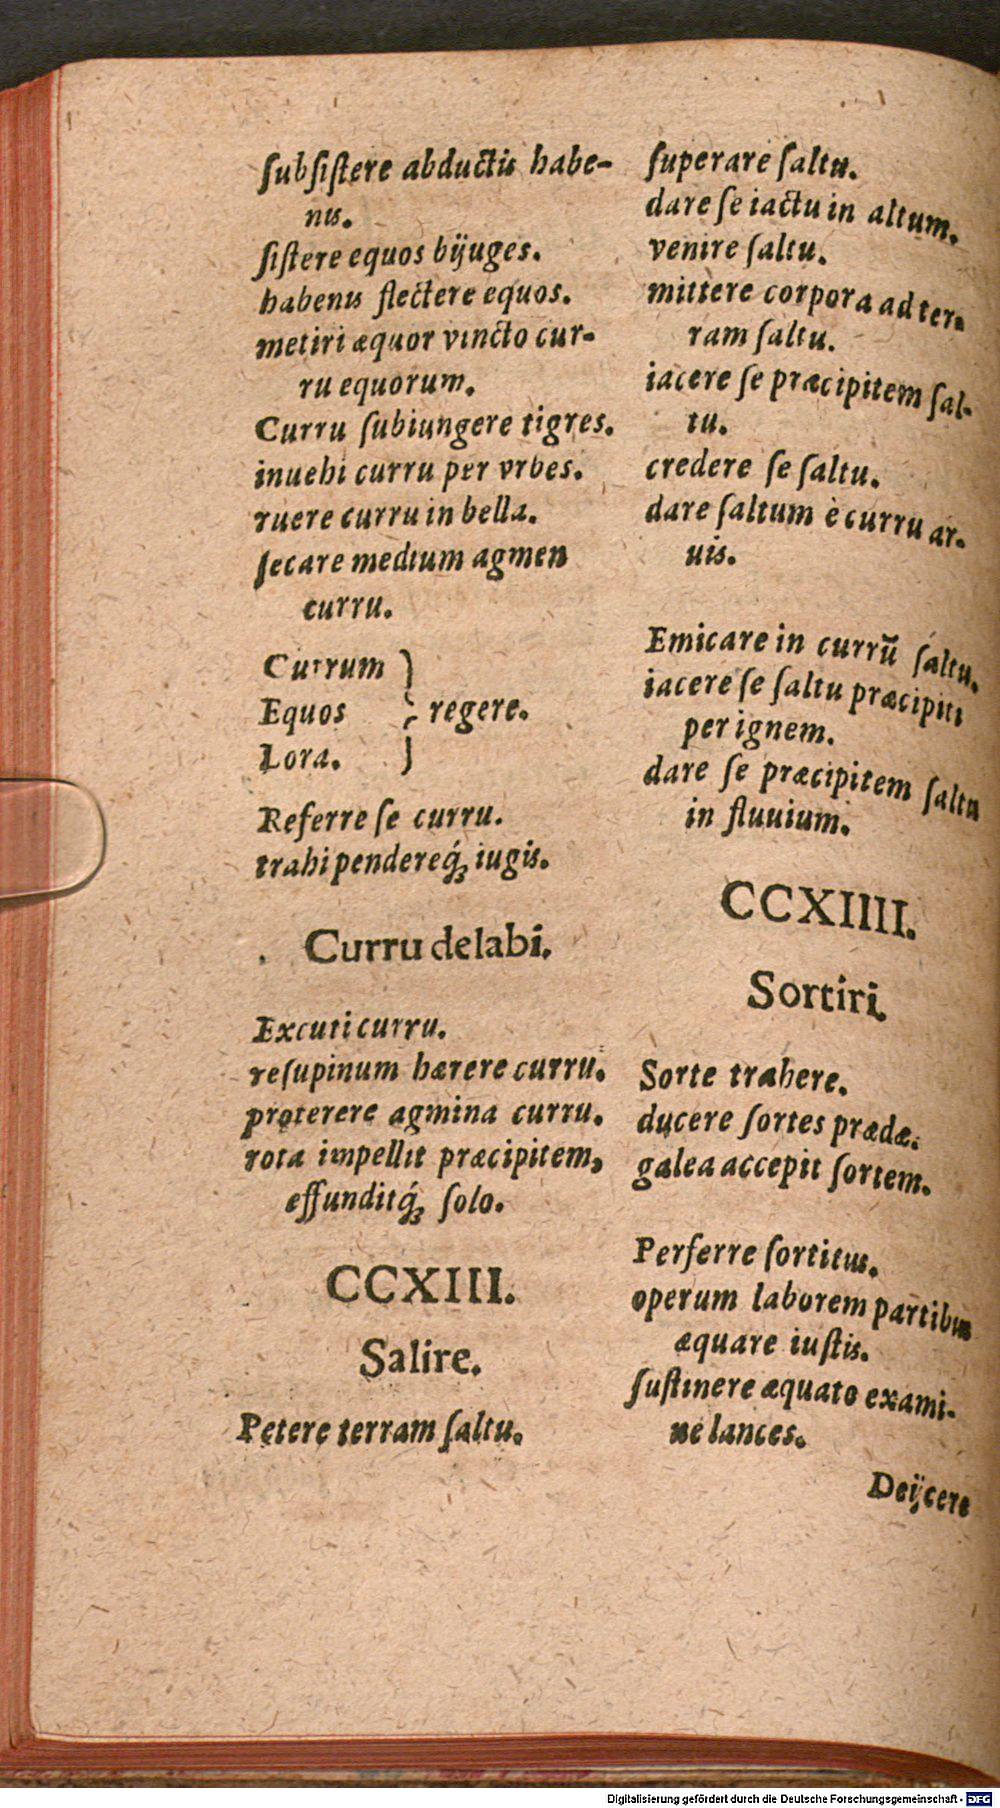 ſubſiſtere abductis habe-
nis.
ſiſtere equos bijuges.
habenis flectere equos.
metiri æquor vincto cur-
ru equorum.
Curru ſubiungere tigres.
inuehi curru per vrbes.
ruere curru in bella.
ſecare medium agmen
curru.
Currum
Equos } regere.
Lora.
Referre ſe curru.
trahi pendereq́; iugis.
Curru delabi.
Excuti curru.
reſupinum hærere curru.
proterere agmina curru.
rota impellit præcipitem,
effunditq́; ſolo.
CCXIII.
Salire.
Petere terram ſaltu.
ſuperare ſaltu.
dare ſe iactu in altum.
venire ſaltu.
mittere corpora ad ter-
ram ſaltu.
iacere ſe præcipitem ſal-
tu.
credere ſe ſaltu.
dare ſaltum è curru ar-
uis.
Emicare in currū ſaltu.
iacere ſe ſaltu præcipiti
per ignem.
dare ſe præcipitem ſaltu
in fluuium.
CCXIIII.
Sortiri.
Sorte trahere.
ducere ſortes prædæ.
galea accepit ſortem.
Perferre ſortitus.
operum laborem partibus
æquare iuſtis.
ſuſtinere æquato exami-
ne lances.
Deijcere
Digitalisierung gefördert durch die Deutsche Forschungsgemeinschaft - DFG